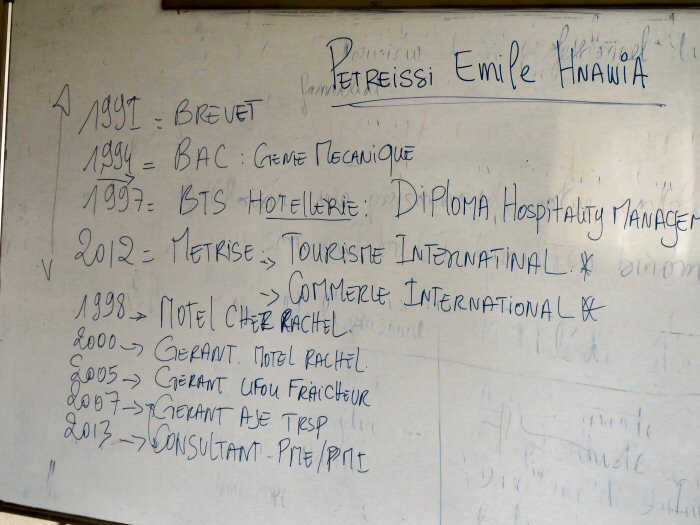 PETREISSI EMILE HNAWIA
1991 = BREVET
1994 = BAC : GENIE MECANIQUE
1997 = BTS HOTELLERIE : DIPLOMA, HOSPITALITY MANAGEM
2012 = METRISE : → TOURISME INTERNATINAL *
→ COMMERCE INTERNATIONAL *
1998 → MOTEL CHEZ RACHEL
2000 → GERANT MOTEL RACHEL
2005 → GERANT FRAICHEUR
2007 → GERANT AJE TRSP
2013 → CONSULTANT - PME/PMI